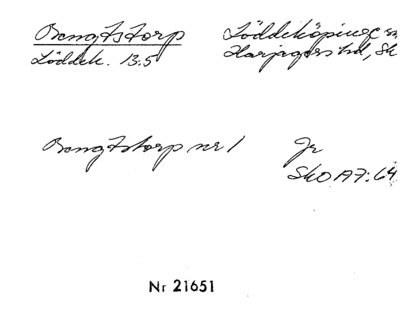 Bengtstorp Löddeköpinge sn
Löddek. 13:5 Harjagers hd, Sk
Bengtstorp nr 1 Jr
SkO A7:64
Nr 21651